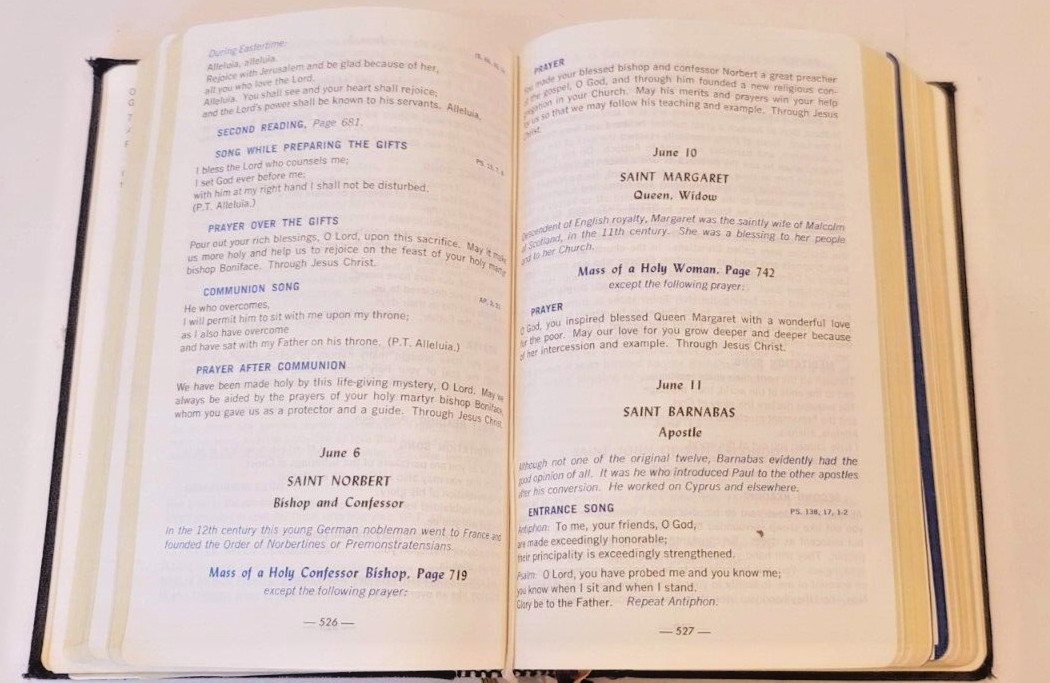 During Eastertime:
Alleluia, alleluia.
Rejoice with Jerusalem and be glad because of her,
all you who love the Lord.
Alleluia. You shall see and your heart shall rejoice;
and the Lord's power shall be known to his servants. Alleluia.
SECOND READING, Page 681.
SONG WHILE PREPARING THE GIFTS
I bless the Lord who counsels me;
I set God ever before me;
with him at my right hand I shall not be disturbed.
(P.T. Alleluia.)
PRAYER OVER THE GIFTS
Pour out your rich blessings, O Lord, upon this sacrifice. May it make
us more holy and help us to rejoice on the feast of your holy martyr
bishop Boniface. Through Jesus Christ.
COMMUNION SONG
He who overcomes,
I will permit him to sit with me upon my throne;
as I also have overcome
and have sat with my Father on his throne. (P.T. Alleluia.)
PRAYER AFTER COMMUNION
We have been made holy by this life-giving mystery, O Lord. May we
always be aided by the prayers of your holy martyr bishop Boniface,
whom you gave us as a protector and a guide. Through Jesus Christ.
June 6
SAINT NORBERT
Bishop and Confessor
In the 12th century this young German nobleman went to France and
founded the Order of Norbertines or Premonstratensians.
Mass of a Holy Confessor Bishop, Page 719
except the following prayer:
— 526 —
PRAYER
made your blessed bishop and confessor Norbert a great preacher
the gospel, O God, and through him founded a new religious con-
in your Church. May his merits and prayers win your help
us so that we may follow his teaching and example. Through Jesus
Christ.
June 10
SAINT MARGARET
Queen, Widow
Descendent of English royalty, Margaret was the saintly wife of Malcolm
of Scotland, in the 11th century. She was a blessing to her people
and to her Church.
Mass of a Holy Woman, Page 742
except the following prayer:
PRAYER
O God, you inspired blessed Queen Margaret with a wonderful love
for the poor. May our love for you grow deeper and deeper because
of her intercession and example. Through Jesus Christ.
June 11
SAINT BARNABAS
Apostle
Although not one of the original twelve, Barnabas evidently had the
good opinion of all. It was he who introduced Paul to the other apostles
after his conversion. He worked on Cyprus and elsewhere.
ENTRANCE SONG PS. 138, 17, 1-2
Antiphon: To me, your friends, O God,
are made exceedingly honorable;
their principality is exceedingly strengthened.
Psalm: O Lord, you have probed me and you know me;
you know when I sit and when I stand.
Glory be to the Father. Repeat Antiphon.
— 527 —